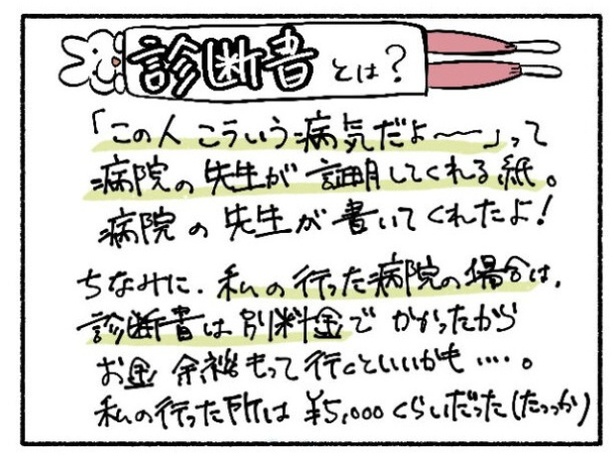 診断書とは?
「この人 こういう病気だよ〜〜」って
病院の先生が 証明してくれる紙。
病院の先生が書いてくれたよ!
ちなみに、私の行った病院の場合は、
診断書は別料金でかかったから
お金 余裕もって行くといいかも‥‥。
私の行った所は ¥5,000くらいだった(たっっか)